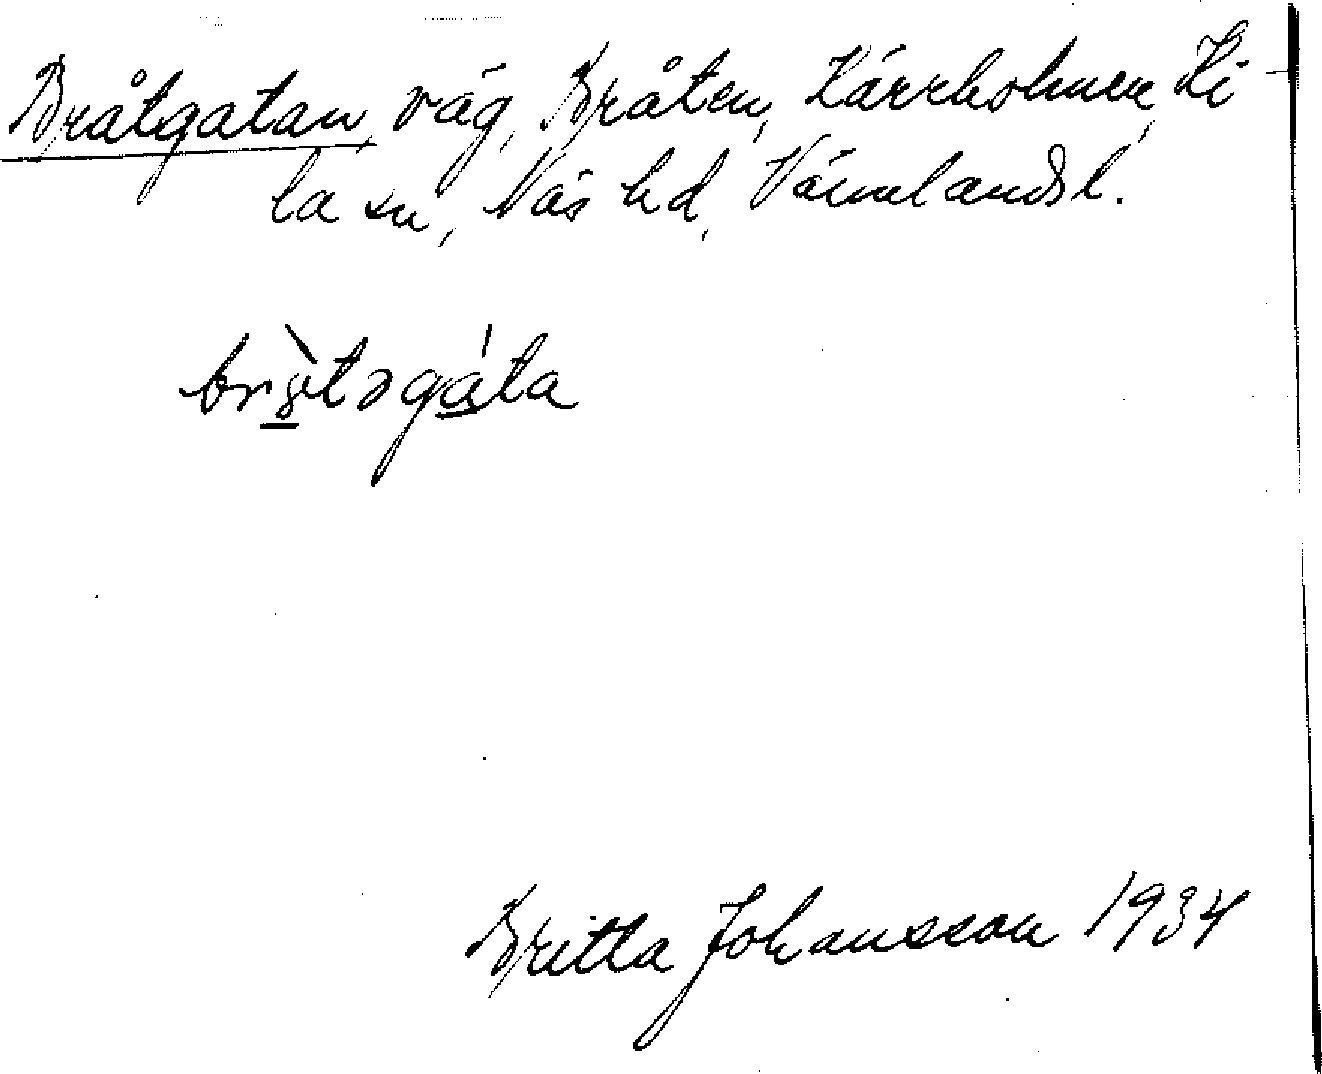 Bråtgatan, väg, Bråten, Kärrholmen, Ki
la sn, Näs hd, Värmlands l.
brȣ̀təgáta
Britta Johansson 1934